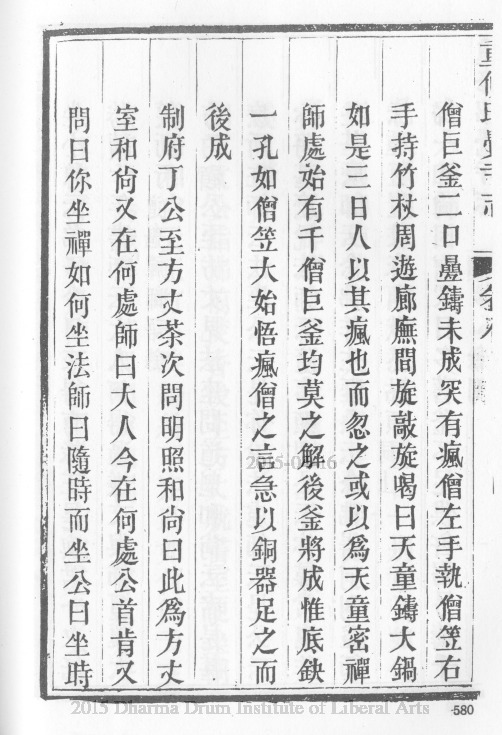 僧巨釜二口曡鑄未成突有瘋僧左手執僧笠右
手持竹杖周遊廊廡間旋敲旋喝曰天童鑄大鍋
如是三日人以其瘋也而忽之或以爲天童密禪
師處始有千僧巨釜均莫之解後釜將成惟底鈌
一孔如僧笠大始悟瘋僧之言急以銅器足之而
後成
制府丁公至方丈茶次問明照和尙曰此爲方丈
室和尙又在何處師曰大人今在何處公首肯又
問曰你坐禪如何坐法師曰隨時而坐公曰坐時
2015-0
16
2015 Dharma Drum Institute of Liberal Arts
580